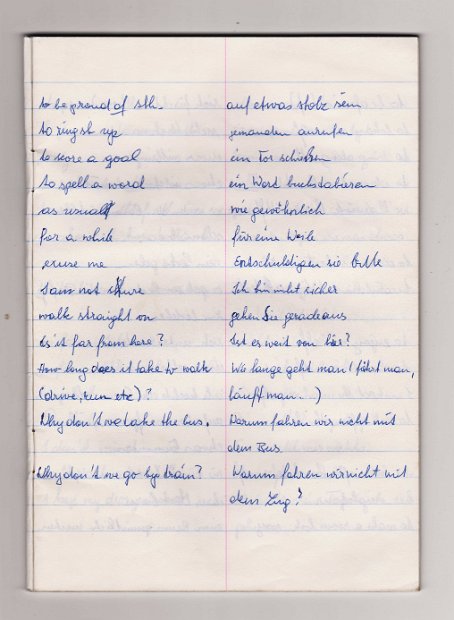 to be proud of sth. auf etwas stolz sein
to ring st up jemanden anrufen
to score a goal ein Tor schießen
to spell a word ein Word buchstabieren
as usual wie gewöhnlich
for a while für eine Weile
excuse me Entschuldigen sie bitte
I am not sure Ich bin nicht sicher
walk straight on gehen Sie geradeaus
Is it far from here? Ist es weit von hier?
How long does it take to walk Wie lange geht man (fährt man,
(drive, run etc)? läuft man...)
Why don't we take the bus. Warum fahren wir nicht mit
dem Bus
Why don't we go by train? Warum fahren wir nicht mit
dem Zug?